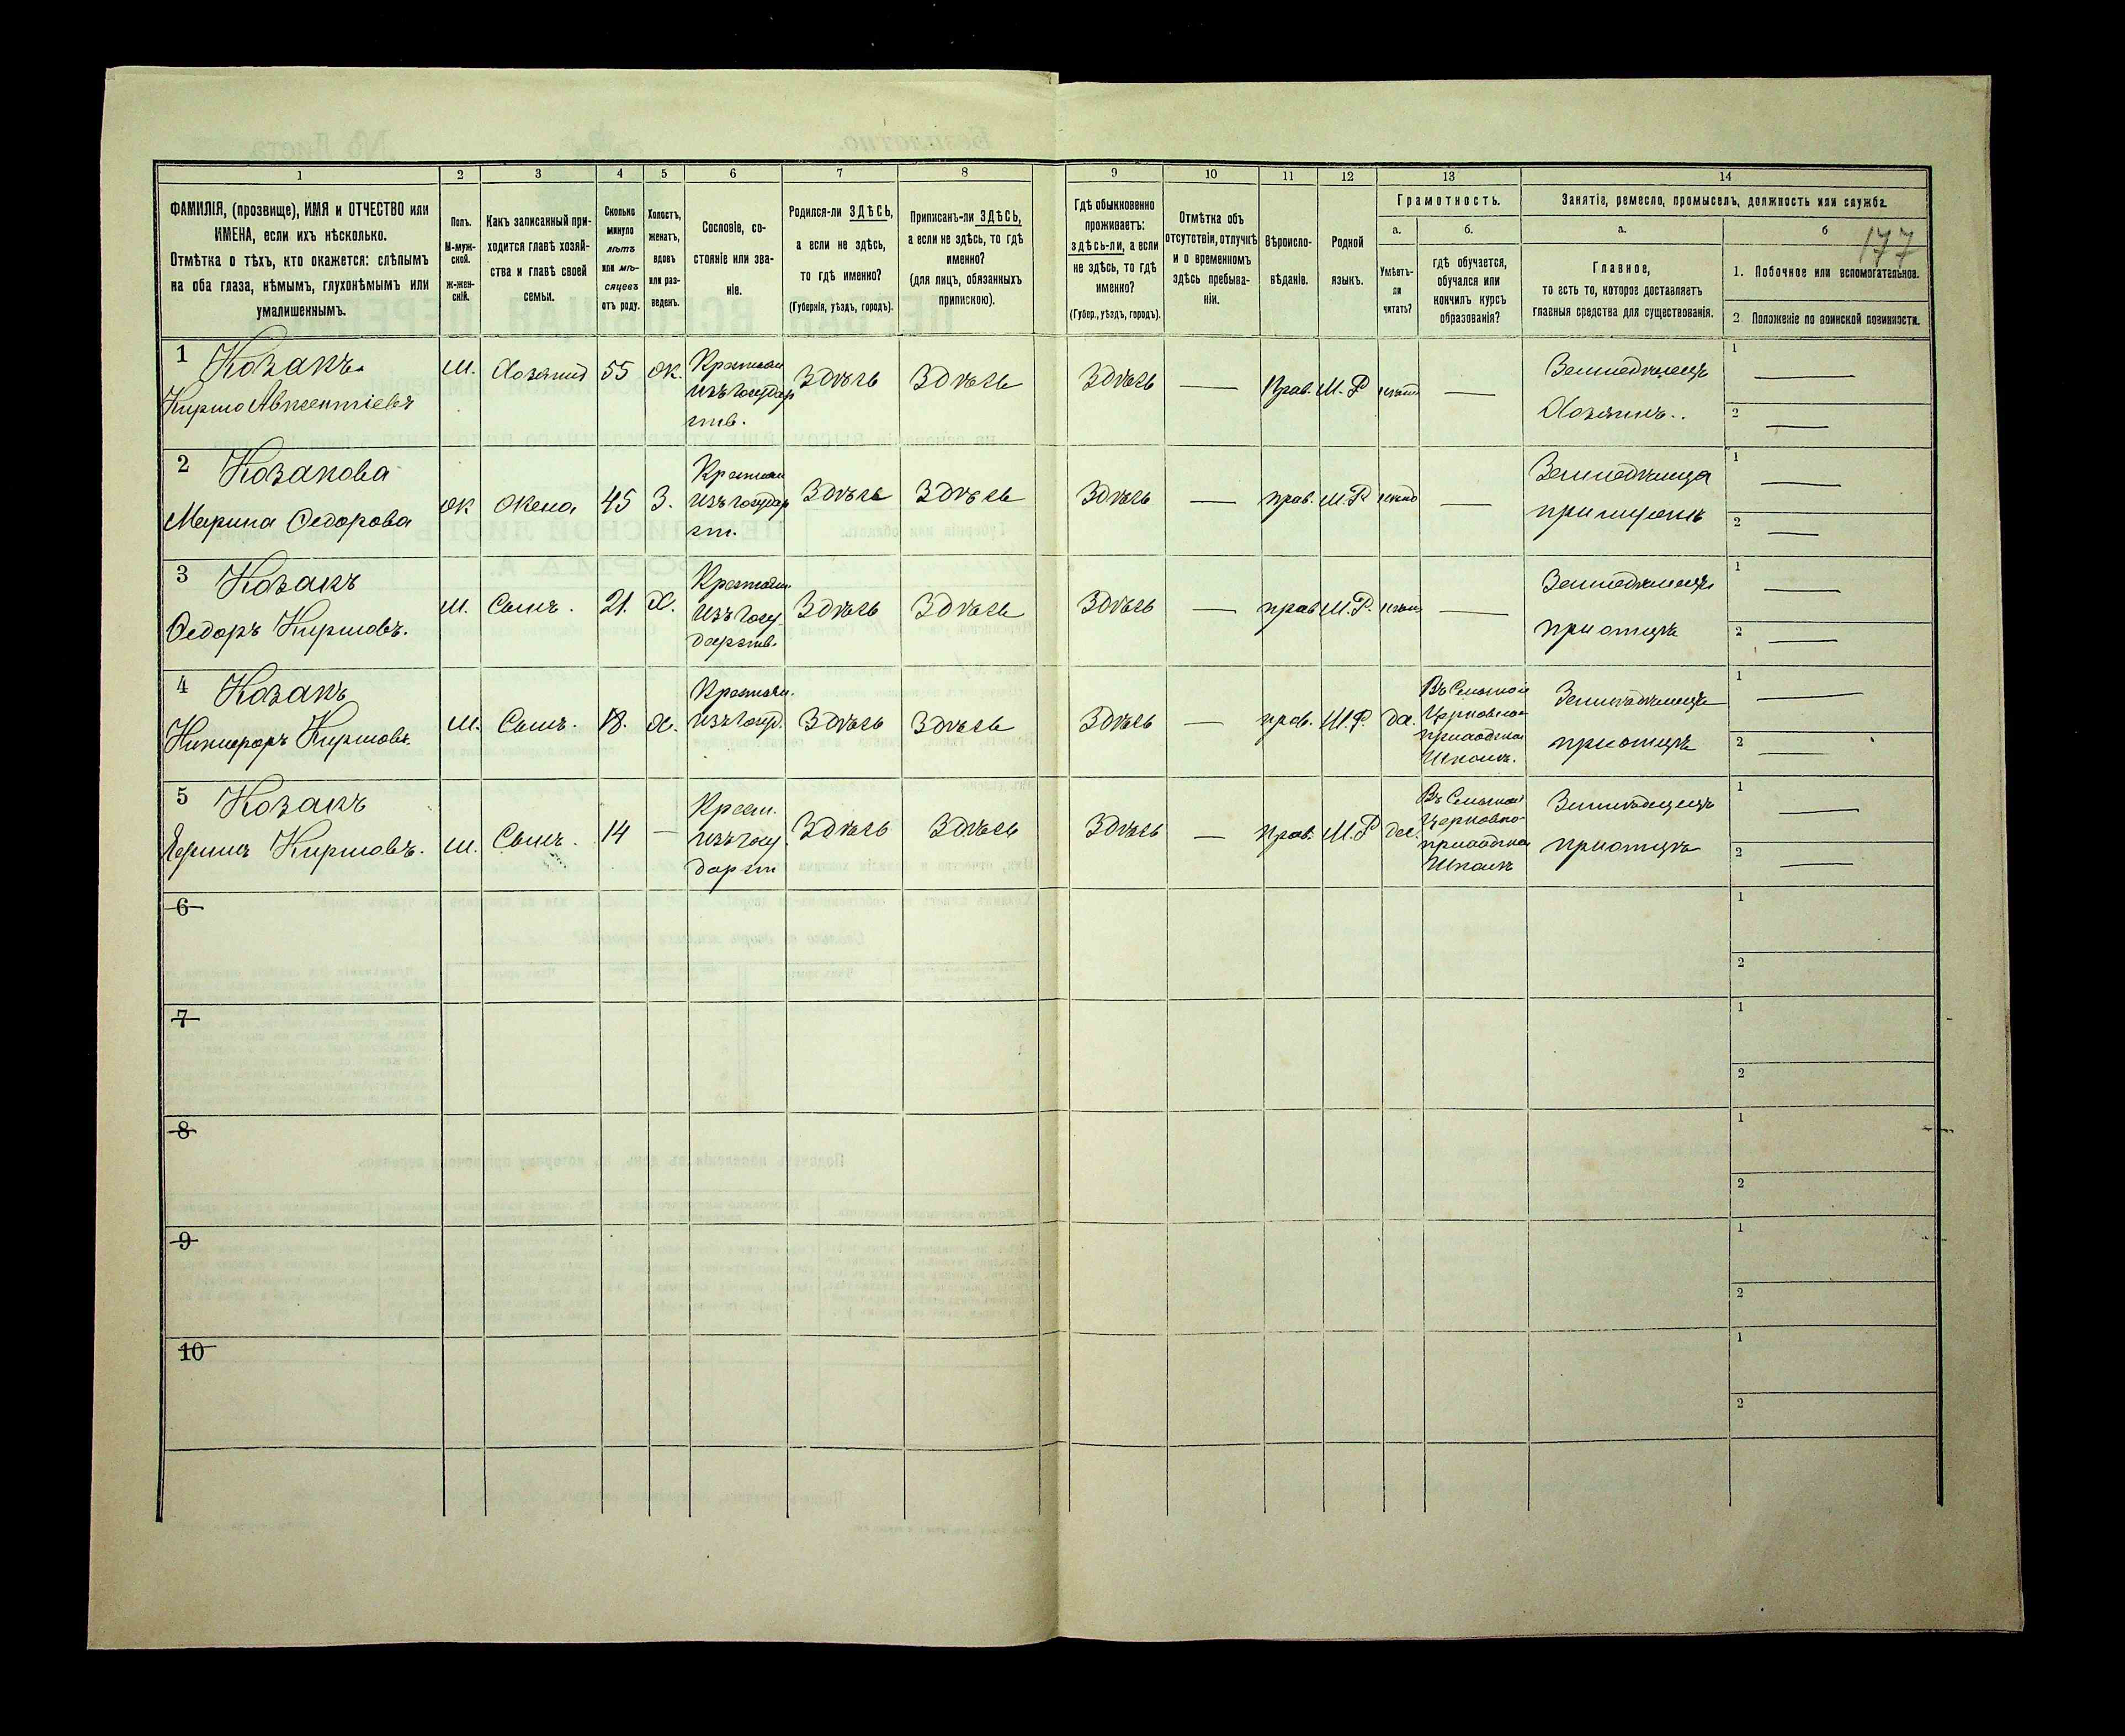 177
1
2
3
4
5
6
7
8
9
10
11
12
13
14
ФАМИЛІЯ, (прозвище), ИМЯ и ОТЧЕСТВО или
ИМЕНА, если ихъ нѣсколько.
Отмѣтка о тѣхъ, кто окажется: слѣпымъ
на оба глаза, нѣмымъ, глухонѣмымъ или
умалишеннымъ.
Полъ.
М-муж-
ской.
Ж-жен-
скій.
Какъ записанный при-
ходится главѣ хозяй-
ства и главѣ своей
семьи.
Сколько
минуло
лѣтъ
или мѣ-
сяцевъ
отъ роду.
Холостъ,
женатъ,
вдовъ
или раз-
веденъ.
Сословіе, со-
стояніе или зва-
ніе.
Родился-ли ЗДѢСЬ,
а если не здѣсь,
то гдѣ именно?
(Губернія, уѣздъ, городъ).
Приписанъ-ли ЗДѢСЬ,
а если не здѣсь, то гдѣ
именно?
(для лицъ, обязанныхъ
припискою).
Гдѣ обыкновенно
проживаетъ:
здѣсь-ли, а если
не здѣсь, то гдѣ
именно?
(Губер., уѣздъ, городъ).
Отмѣтка объ
отсутствіи, отлучкѣ
и о временномъ
здѣсь пребыва-
ніи.
Вѣроиспо-
вѣданіе.
Родной
языкъ.
Грамотность.
а.
Умѣетъ-
ли
читать?
б.
гдѣ обучается,
обучался или
кончилъ курсъ
образованія?
Занятіе, ремесло, промыселъ, должность или служба.
а.
Главное,
то есть то, которое доставляетъ
главныя средства для существованія.
б
1. Побочное или вспомогательное.
2. Положеніе по воинской повинности.
1 Козакъ
Кирило Авксентіевъ
м. Хозяинъ 55 ж.
Крестьян
изъ государ
ств.
Здѣсь Здѣсь Здѣсь — Прав. М.Р —
Земледѣлецъ
Хозяинъ.
1 —
2 —
2 Козакова
Марина Федорова
ж Жена 45 З.
Крестьян
изъ государ
ст.
Здѣсь Здѣсь Здѣсь — прав. М.Р —
Земледѣлица
при мужѣ
1 —
2 —
3 Козакъ
Федоръ Кириловъ.
м. Сынъ. 21. Х.
Крестьян.
изъ госу
дарств.
Здѣсь Здѣсь Здѣсь — прав М.Р. —
Земледѣлецъ
при отцѣ
1 —
2 —
4 Козакъ
Никифоръ Кириловъ.
м. Сынъ. 18. Х.
Крестьян.
изъ госуд.
Здѣсь Здѣсь Здѣсь — прав. М.Р. да.
Въ Сельской
Церковно-
приходской
Школѣ.
Земледѣлецъ
при отцѣ
1 —
2 —
5 Козакъ
Кириловъ.
м. Сынъ. 14 —
Крест.
изъ госу
дарст
Здѣсь Здѣсь Здѣсь — Прав. М.Р да.
Въ Сельской
Церковно-
приходской
Школѣ
Земледѣлецъ
при отцѣ
1 —
2 —
6
1
2
7
1
2
8
1
2
9
1
2
10
1
2